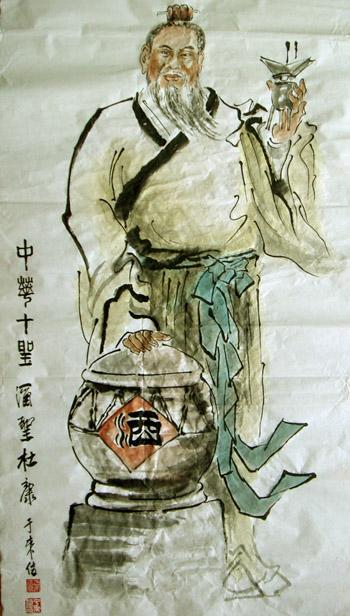 中華十聖 酒聖杜康
酒